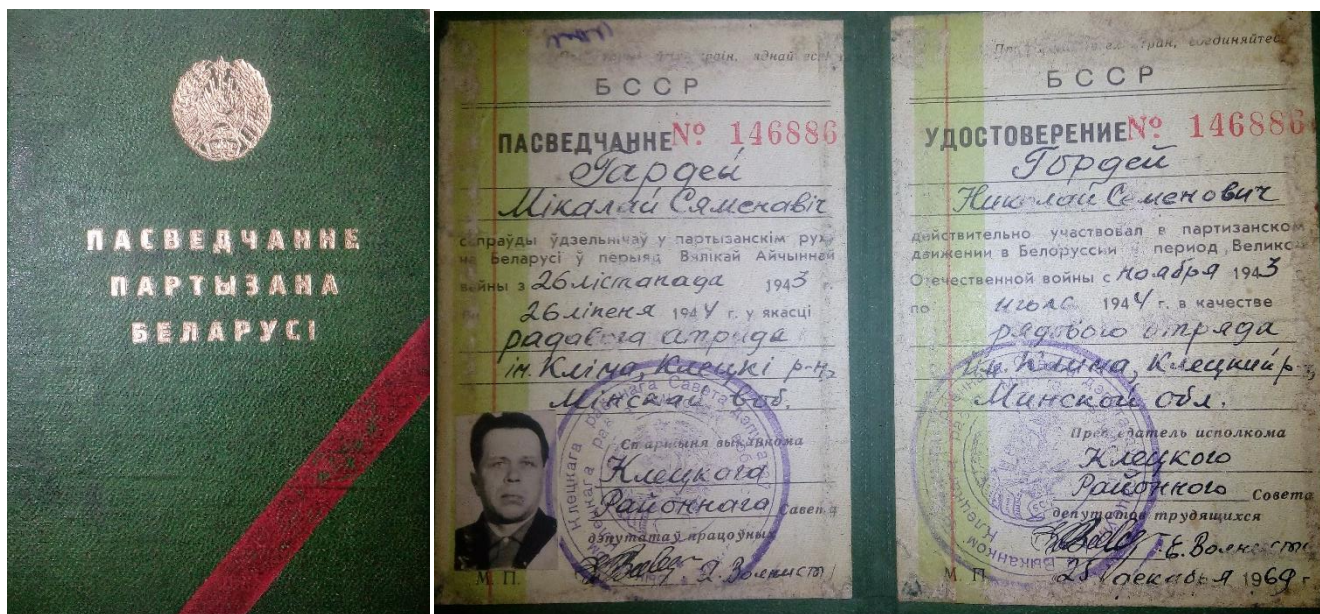 ПАСВЕДЧАННЕ
ПАРТЫЗАНА
БЕЛАРУСІ
БССР
ПАСВЕДЧАННЕ № 146886
Гардей
Мікалай Сяменавіч
сапраўды ўдзельнічаў у партызанскім руху
на Беларусі ў перыяд Вялікай Айчыннай
вайны з 26 лістапада 1943 г.
па 26 ліпеня 1944 г. у якасці
радавога атрада
ім. Кліма, Клецкі р-н,
Мінскай воб.
Старшыня выканкома
Клецкага
Раённага Савета
дэпутатаў працоўных
М. П.
Пролетарии всех стран, соединяйтесь
БССР
УДОСТОВЕРЕНИЕ № 146886
Гордей
Николай Семенович
действительно участвовал в партизанском
движении в Белоруссии в период Великой
Отечественной войны с ноября 1943
по июль 1944 г. в качестве
рядового отряда
им. Клима, Клецкий р-,
Минской обл.
Председатель исполкома
Клецкого
Районного Совета
депутатов трудящихся
М. П. 25 декабря 1969 г